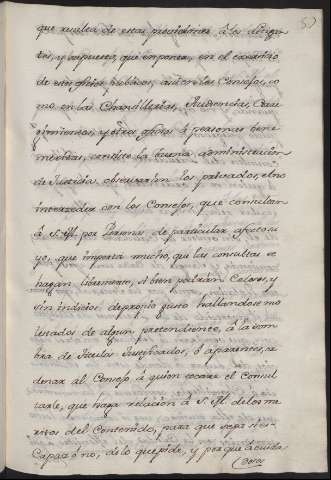 que resulta de estas provisiones á los
tes, y supuesto, que importa, en el exercicio
de los oficios publicos, asi en los Consejos, co
mo en las Chancillerias, Audiencias, Corre
gimientos, y otros oficios á personas bene
meritas, consiste la buena administracion
de Justicia, observarán los privados, el no
interceder con los Consejos, que consultan
á S. M. por Persona de particular afecto su
yo, que importa mucho, que las consultas se
hagan libremente, si bien podrán Celar, y
sin indicios de propio gusto hallandose mo
lestados de algun pretendiente, á la som
bra de Titulos Justificados, ó aparentes, or
denar al Consejo á quien tocare el Consul
tarle, que haga relacion á S. M. de los me
ritos del Contenido, para que sepa si es
Capaz ó no, de lo que pide, y por que